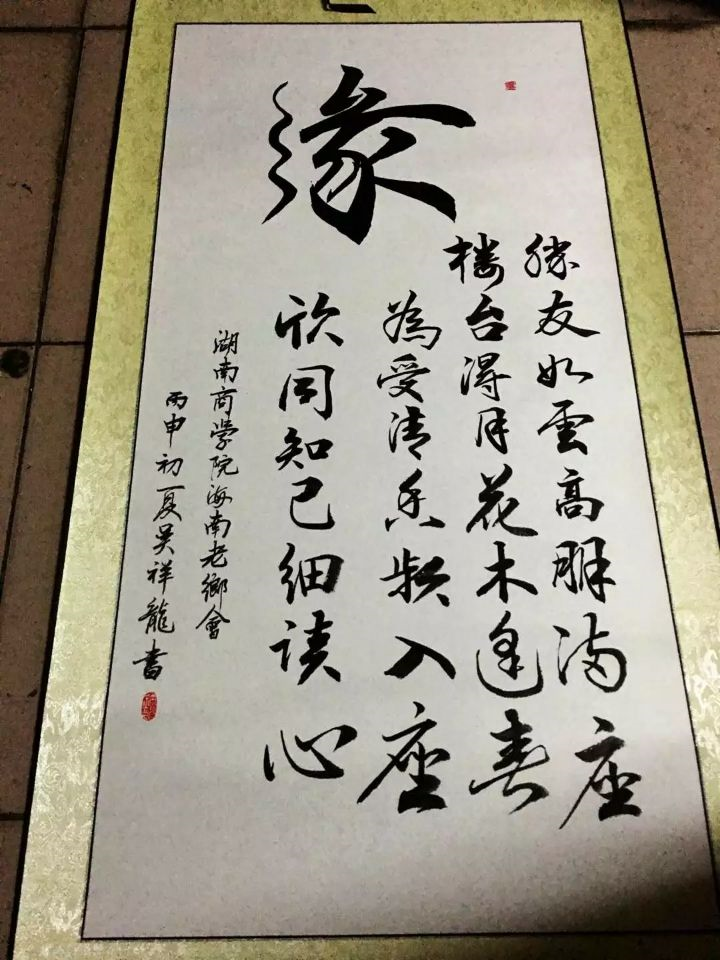 緣
勝友如雲高朋满座
楼台得月花木逢春
為受清香频入座
欣同知己细谈心
湖南商学院海南老鄉會
丙申初夏吴祥龍書